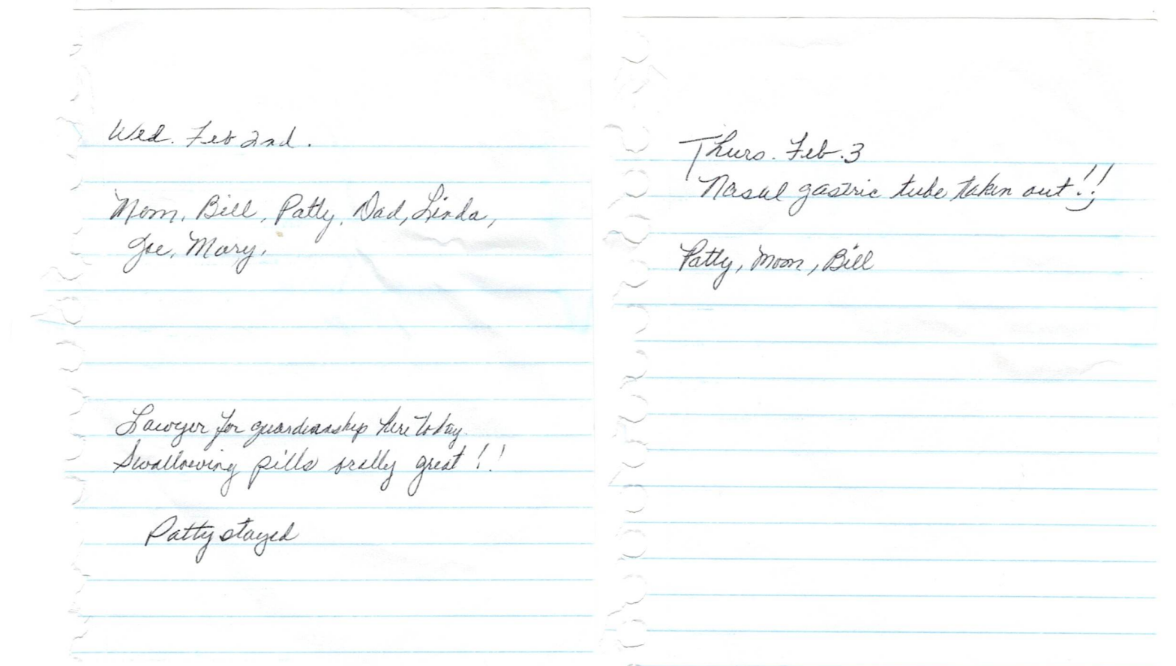 Wed. Feb 2nd.
Mom, Bill, Patty, Dad, Linda,
Joe, Mary,
Lawyer for guardianship here today.
Swallowing pills orally great!!
Patty stayed
Thurs. Feb. 3
Nasal gastric tube taken out!!
Patty, Mom, Bill